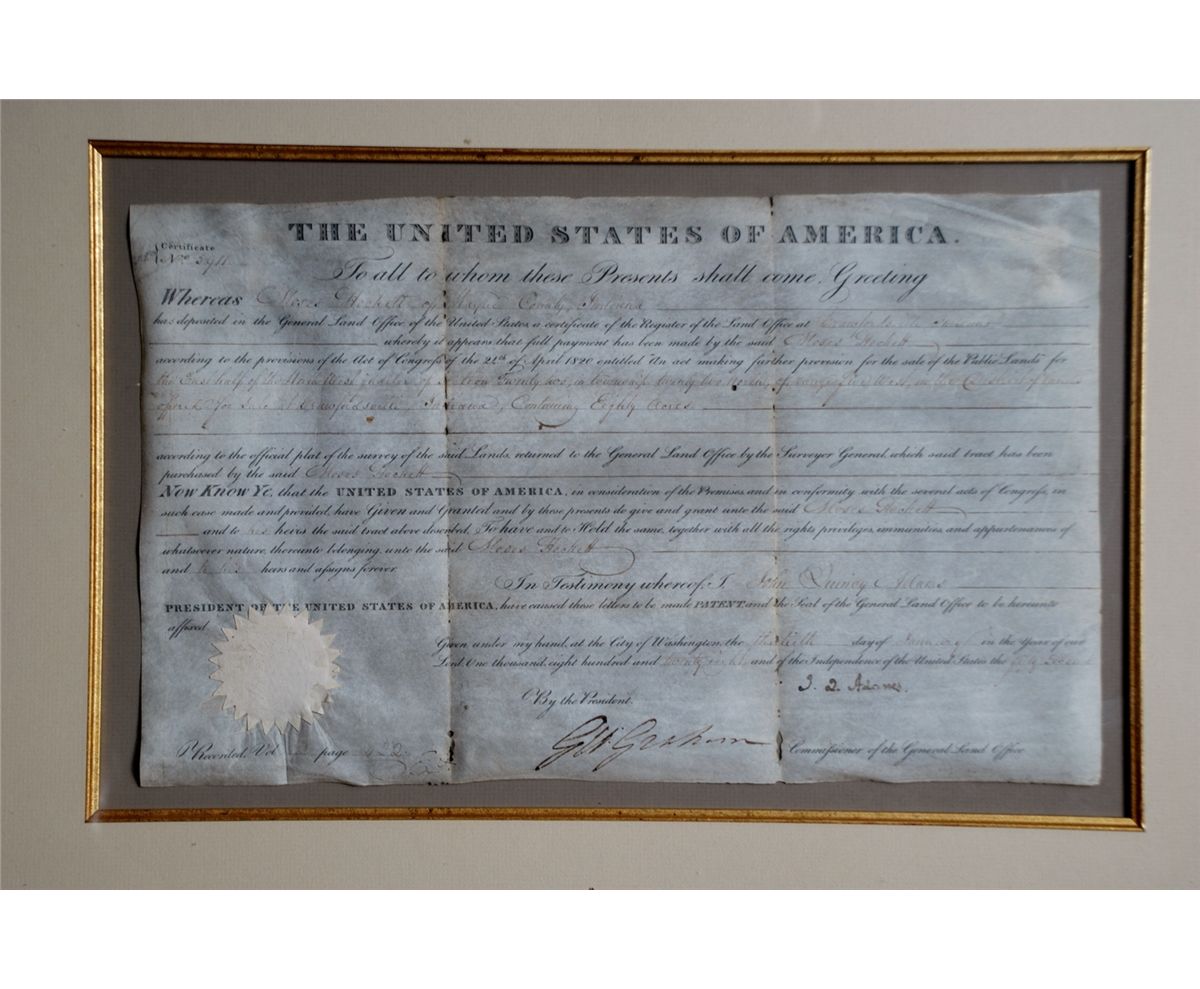 THE UNITED STATES OF AMERICA.
Certificate
No.
To all to whom these Presents shall come, Greeting
Whereas Moses Hockett of Wayne County, Indiana
has deposited in the General Land Office of the United States, a certificate of the Register of the Land Office at Crawfordsville Indiana
whereby it appears that full payment has been made by the said Moses Hockett
according to the provisions of the Act of Congress of the 24th of April 1820 entitled "An act making further provision for the sale of the Public Lands" for
the East half of the quarter of Section Twenty two, in township twenty two of range West, in the
for Sale at Crawfordsville Indiana, Containing Eighty Acres
according to the official plat of the survey of the said Lands, returned to the General Land Office by the Surveyor General, which said tract has been
purchased by the said Moses Hockett
Now Know Ye, that the UNITED STATES OF AMERICA, in consideration of the Premises, and in conformity with the several acts of Congress, in
such case made and provided, have Given and Granted and by these presents do give and grant unto the said Moses Hockett
and to his heirs the said tract above described, To have and to Hold the same, together with all the rights privileges, immunities, and appurtenances of
whatsoever nature, thereunto belonging, unto the said Moses Hockett
and to his heirs and assigns forever.
In Testimony whereof, I John Quincy Adams
PRESIDENT OF THE UNITED STATES OF AMERICA, have caused these letters to be made PATENT and the Seal of the General Land Office to be hereunto
affixed.
Given under my hand, at the City of Washington, the day of January in the Year of our
Lord, One thousand, eight hundred and twenty eight and of the Independence of the United States the fifty second
J. Q. Adams.
By the President.
G W Graham Commissioner of the General Land Office
Recorded, Vol page